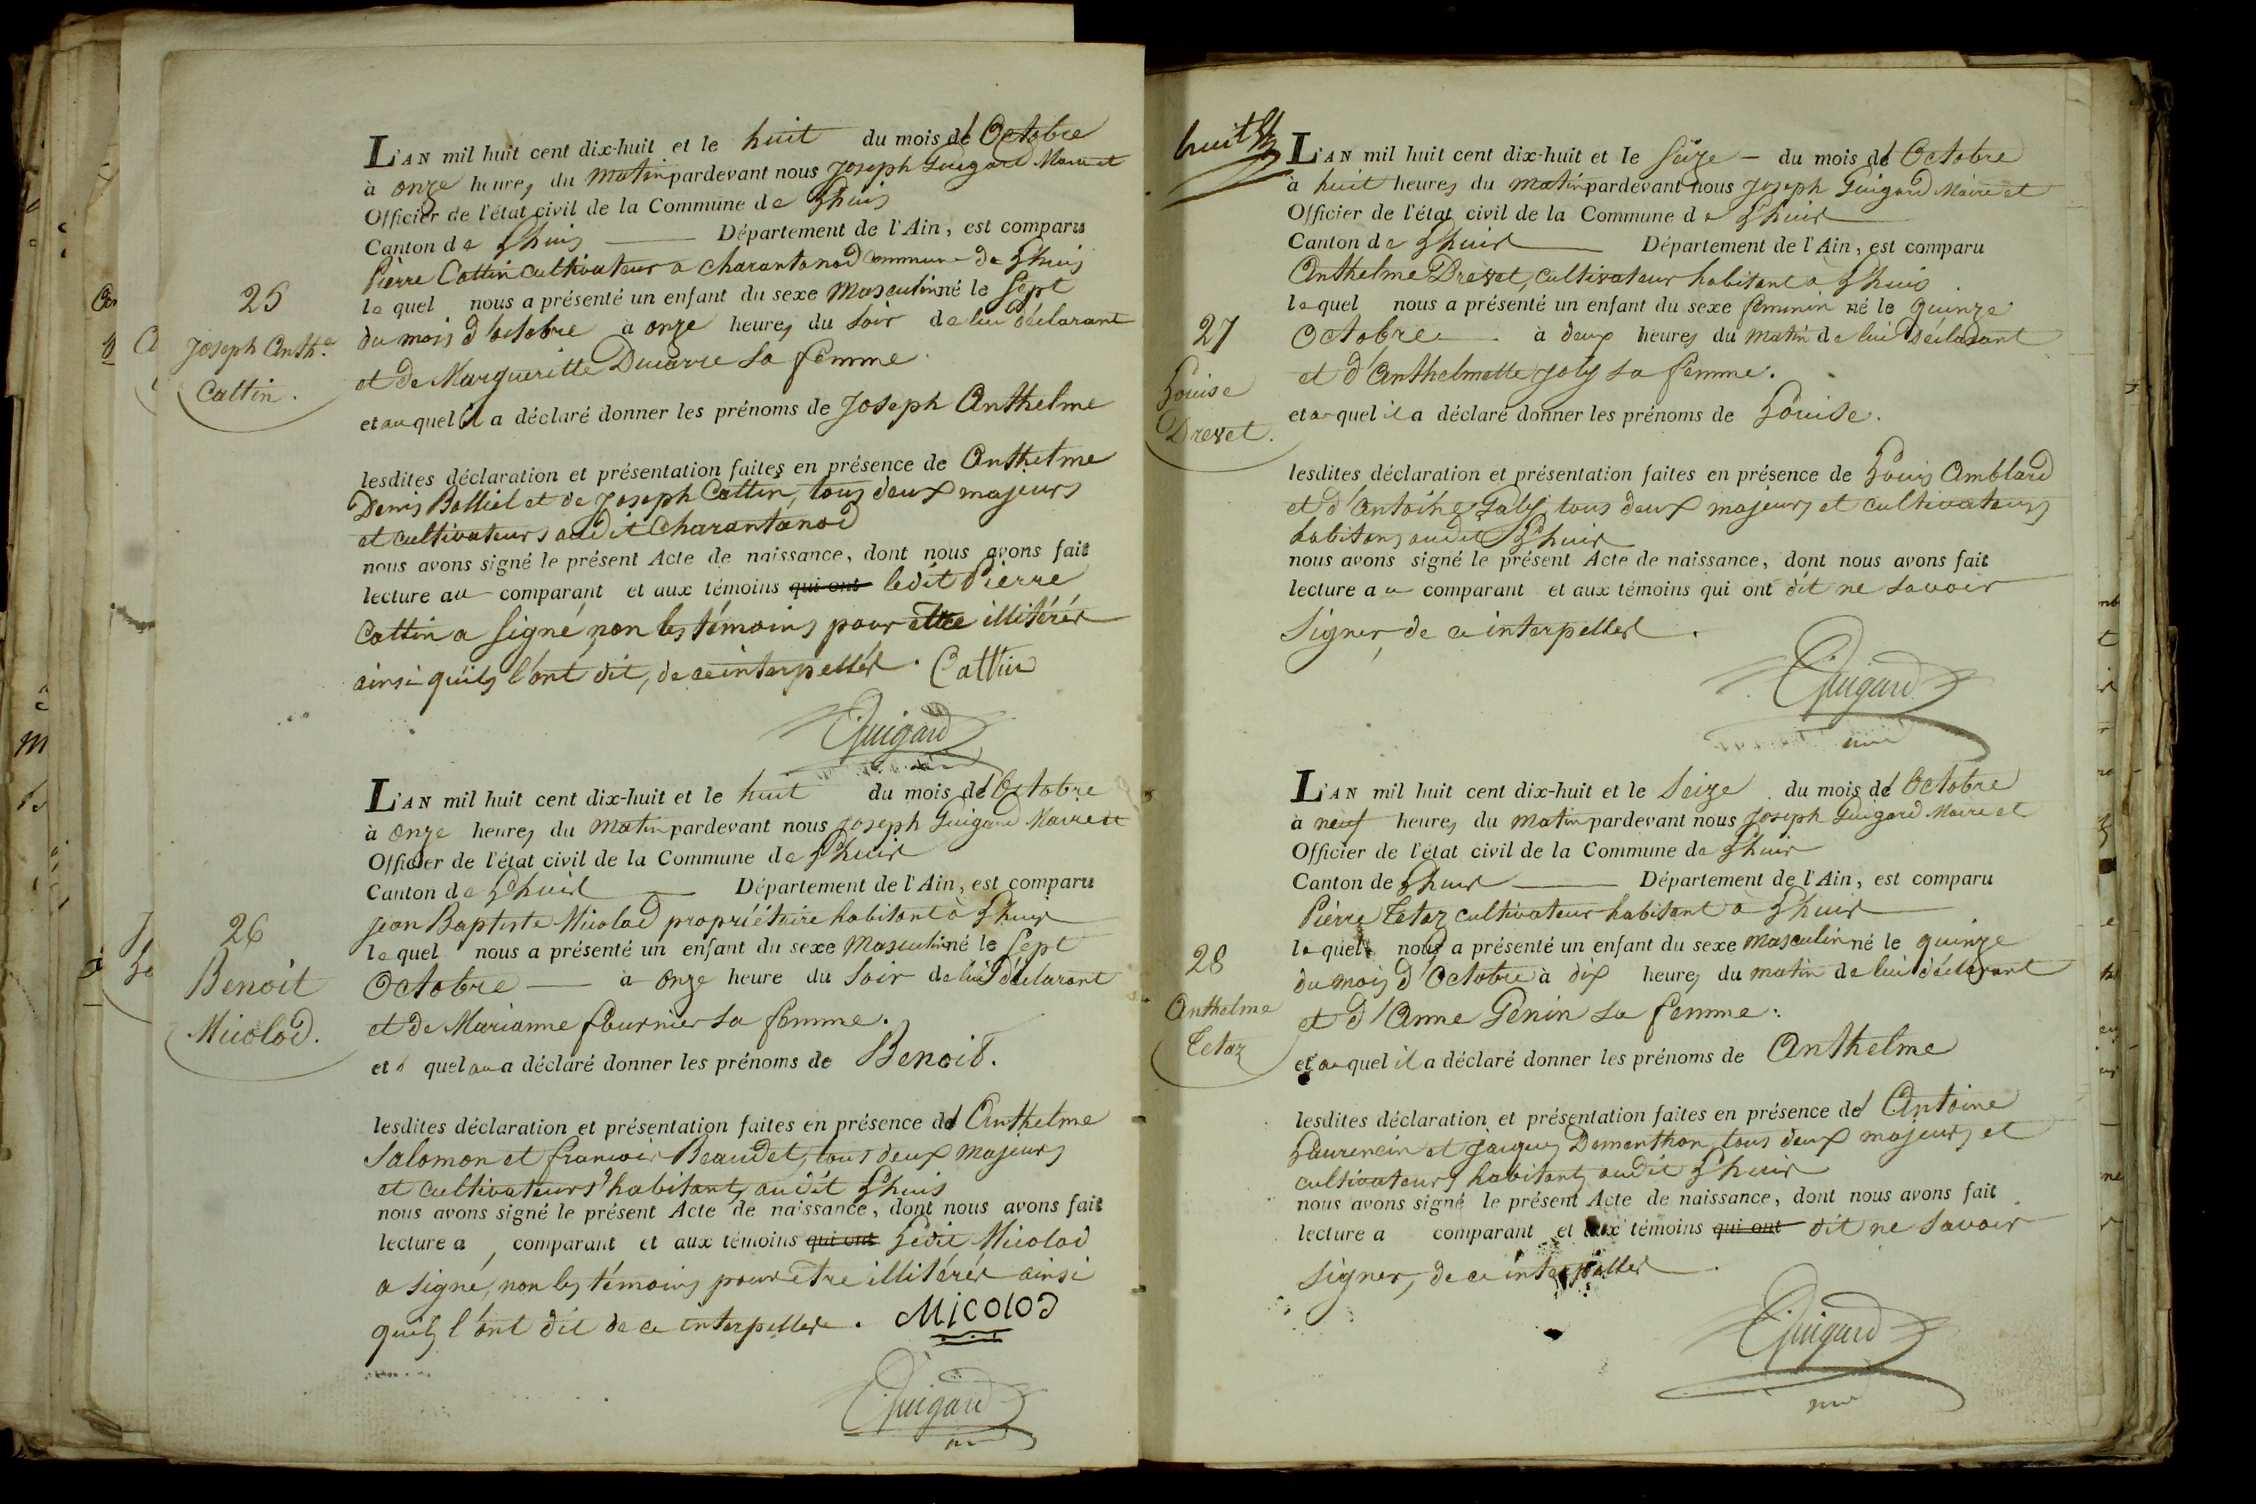 25
Joseph Anth.e
Cattin.
L'AN mil huit cent dix-huit et le huit du mois d'Octobre
à onze heures du matin pardevant nous Joseph Guigard Maire et
Officier de l'état civil de la Commune de Lhuis
Canton de Lhuis Département de l'Ain, est comparu
Pierre Cattin cultivateur a charantonod commune de Lhuis
lequel nous a présenté un enfant du sexe Masculin né le Sept
du mois d'octobre à onze heures du Soir de lui déclarant
et de Margueritte Ducarre sa femme.
et auquel il a déclaré donner les prénoms de Joseph Anthelme
lesdites déclaration et présentation faites en présence de Anthelme
Denis Bolliet et de Joseph Cattin, tous deux majeurs
et cultivateurs audit Charantonod
nous avons signé le présent Acte de naissance, dont nous avons fait
lecture au comparant et aux témoins qui ont ledit Pierre
Cattin a signé, non les témoins pour être illitérés
ainsi qu'ils l'ont dit, de ce interpellés. Cattin
Guigard
26
Benoit
Micolod.
L'AN mil huit cent dix-huit et le huit du mois d'Octobre
à onze heures du Matin pardevant nous Joseph Guigard Maire et
Officier de l'état civil de la Commune de Lhuis
Canton de Lhuis Département de l'Ain, est comparu
Jean Baptiste Micolod propriétaire habitant à Lhuis
lequel nous a présenté un enfant du sexe Masculin né le Sept
Octobre à onze heure du Soir de lui déclarant
et de Marianne fournier sa femme.
et quel au a déclaré donner les prénoms de Benoit.
lesdites déclaration et présentation faites en présence d'Anthelme
Salomon et francois Beaudet, tous deux majeurs
et cultivateurs habitants audit Lhuis
nous avons signé le présent Acte de naissance, dont nous avons fait
lecture a comparant et aux témoins qui ont Ledit Micolod
a signé, non les témoins pour être illitérés ainsi
qu'ils l'ont dit de ce interpellés. Micolod
Guigard
huit
27
Louise
Drevet.
L'AN mil huit cent dix-huit et le Seize du mois d'Octobre
à huit heures du matin pardevant nous Joseph Guigard Maire et
Officier de l'état civil de la Commune de Lhuis
Canton de Lhuis Département de l'Ain, est comparu
Anthelme Drevet, cultivateur habitant a Lhuis
lequel nous a présenté un enfant du sexe feminin né le quinze
Octobre à deux heures du matin de lui déclarant
et d'Anthelmette Joly sa femme.
et auquel il a déclaré donner les prénoms de Louise.
lesdites déclaration et présentation faites en présence de Louis Amblard
et d'Antoine Galy, tous deux majeurs et cultivateurs
habitans audit Lhuis
nous avons signé le présent Acte de naissance, dont nous avons fait
lecture au comparant et aux témoins qui ont dit ne savoir
signer, de ce interpellés.
Guigard
28
Anthelme
Tetaz
L'AN mil huit cent dix-huit et le Seize du mois d'Octobre
à neuf heures du matin pardevant nous Joseph Guigard Maire et
Officier de l'état civil de la Commune de Lhuis
Canton de Lhuis Département de l'Ain, est comparu
Pierre Tetaz cultivateur habitant a Lhuis
lequel nous a présenté un enfant du sexe masculin né le quinze
du mois d'Octobre à dix heures du matin de lui déclarant
et d'Anne Genin sa femme.
et auquel il a déclaré donner les prénoms de Anthelme
lesdites déclaration et présentation faites en présence d'Antoine
Laurencin et Jacques Dementhon, tous deux majeurs et
cultivateurs habitants audit Lhuis
nous avons signé le présent Acte de naissance, dont nous avons fait
lecture a comparant et aux témoins qui ont dit ne savoir
signer, de ce interpellés.
Guigard